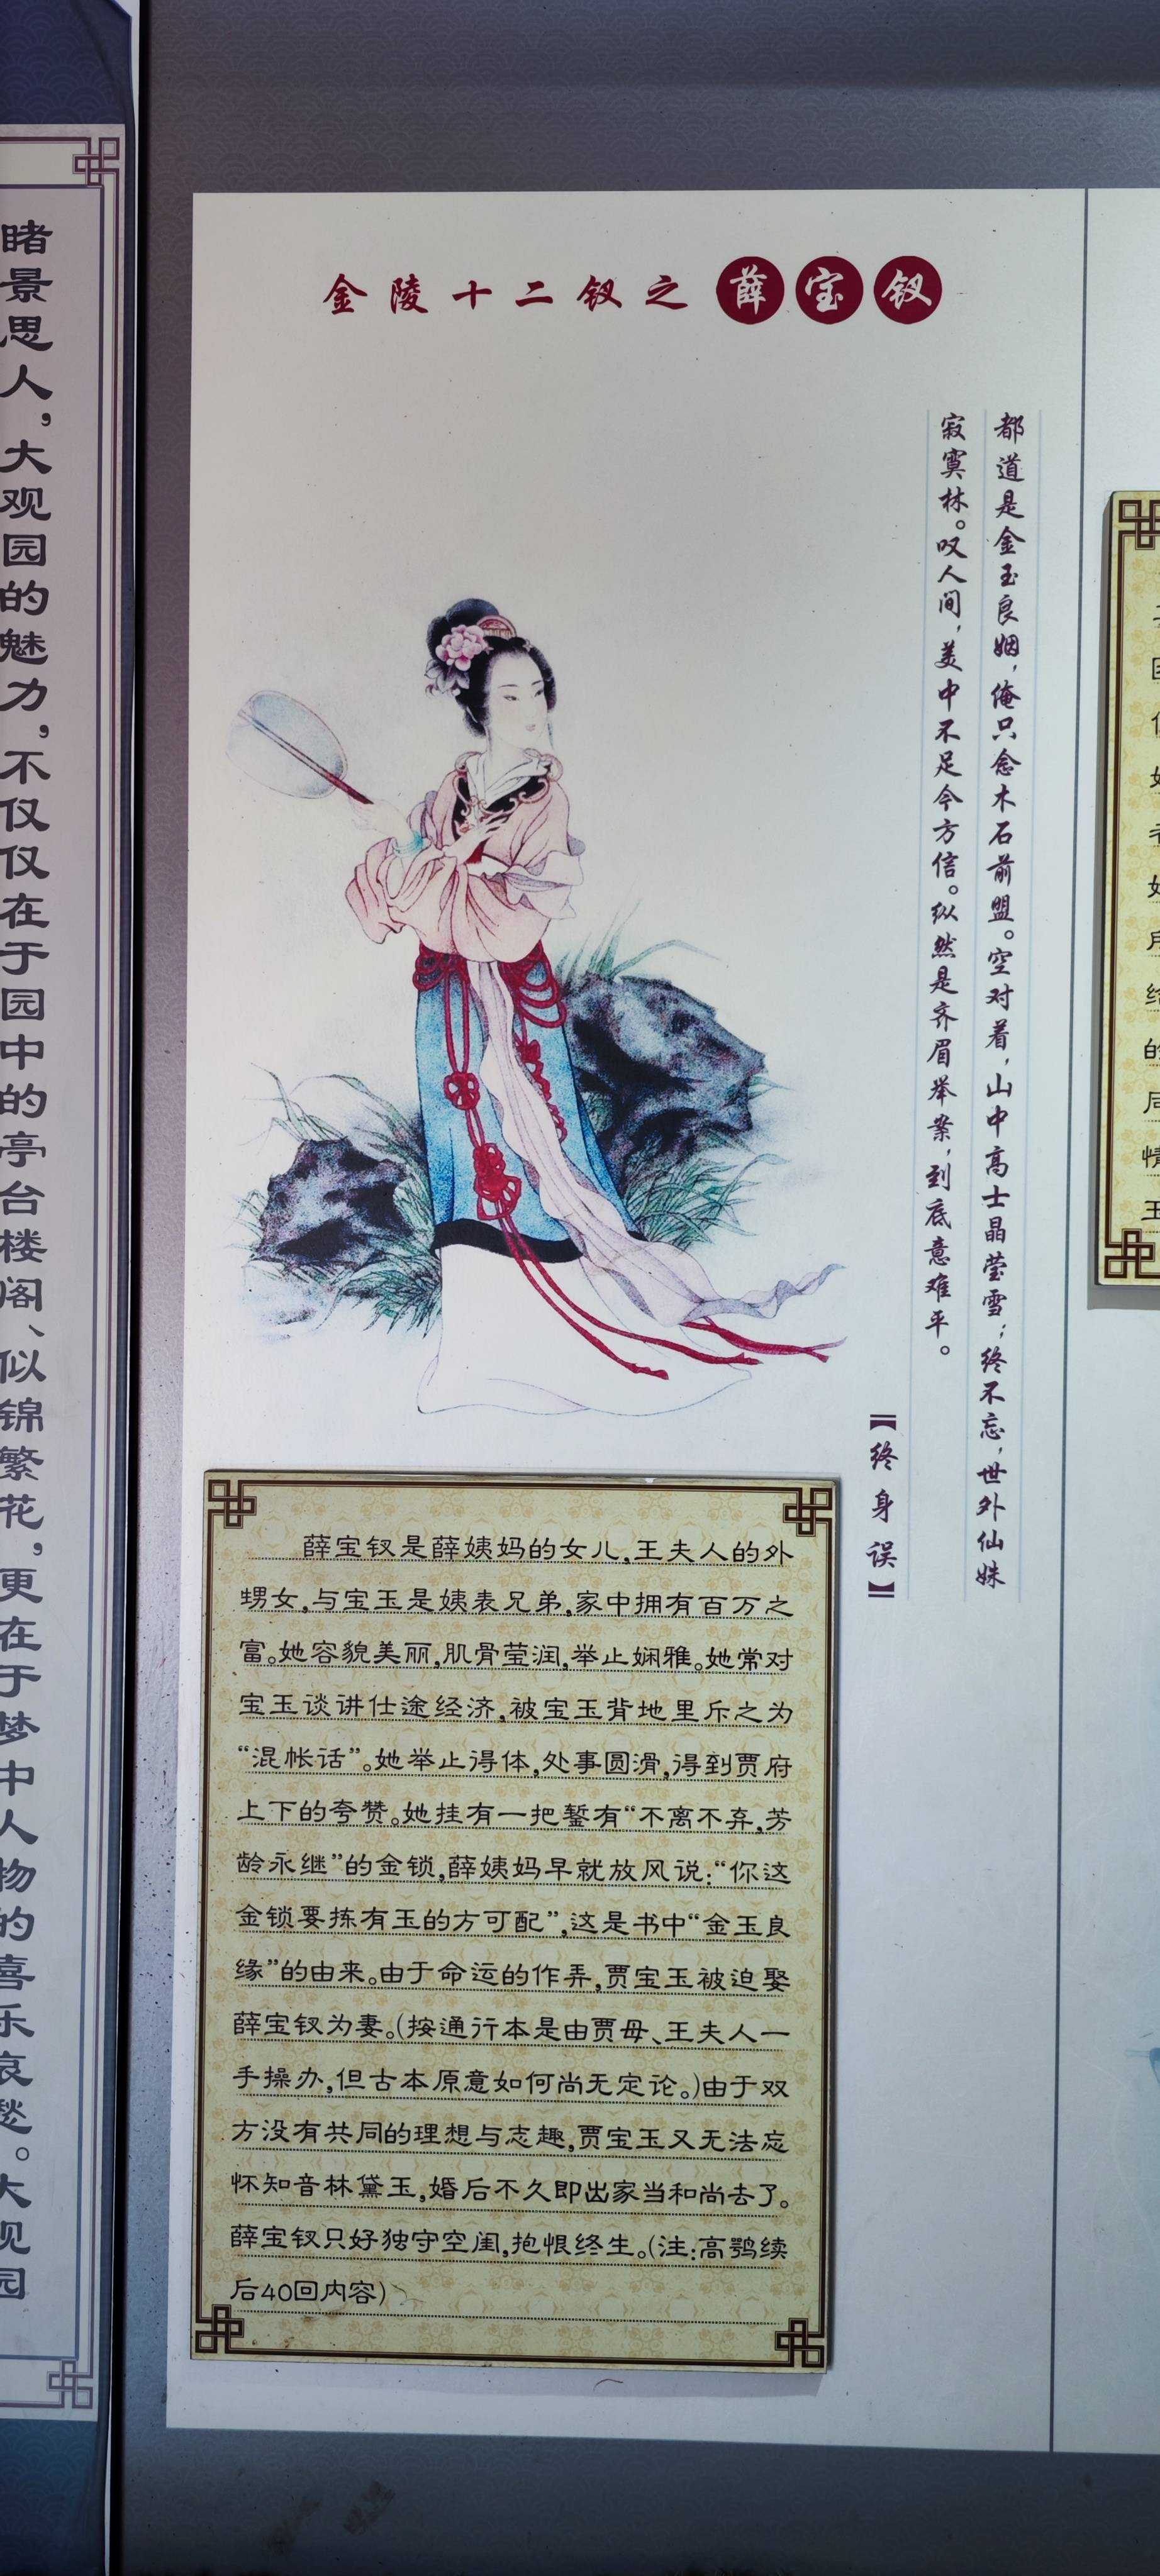 睹景思人，大观园的魅力，不仅仅在于园中的亭台楼阁、似锦繁花，更在于梦中人物的喜乐哀愁。大观园
金陵十二钗之薛宝钗
都道是金玉良姻，俺只念木石前盟。空对着，山中高士晶莹雪；终不忘，世外仙姝
寂寞林。叹人间，美中不足今方信。纵然是齐眉举案，到底意难平。
【终身误】
薛宝钗是薛姨妈的女儿，王夫人的外
甥女，与宝玉是姨表兄弟，家中拥有百万之
富。她容貌美丽，肌骨莹润，举止娴雅。她常对
宝玉谈讲仕途经济，被宝玉背地里斥之为
“混帐话”。她举止得体，处事圆滑，得到贾府
上下的夸赞。她挂有一把錾有“不离不弃，芳
龄永继”的金锁，薛姨妈早就放风说：“你这
金锁要拣有玉的方可配”，这是书中“金玉良
缘”的由来。由于命运的作弄，贾宝玉被迫娶
薛宝钗为妻。（按通行本是由贾母、王夫人一
手操办，但古本原意如何尚无定论。）由于双
方没有共同的理想与志趣，贾宝玉又无法忘
怀知音林黛玉，婚后不久即出家当和尚去了。
薛宝钗只好独守空闺，抱恨终生。（注：高鹗续
后40回内容）